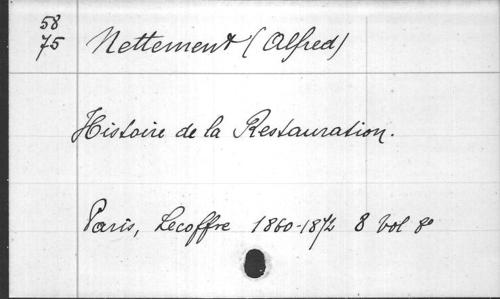 58
75
Nettement (Alfred)
Histoire de la Restauration.
Paris, Lecoffre 1860-1872 8 vol 8º